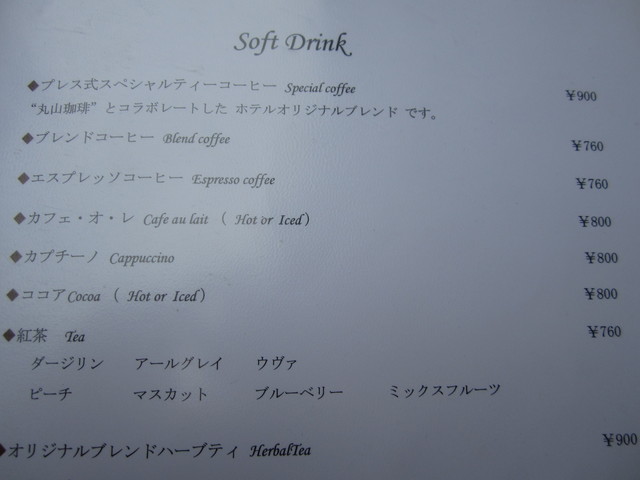 Soft Drink
◆プレス式スペシャルティーコーヒー Special coffee ￥900
“丸山珈琲”とコラボレートした ホテルオリジナルブレンド です。
◆ブレンドコーヒー Blend coffee ￥760
◆エスプレッソコーヒー Espresso coffee ￥760
◆カフェ・オ・レ Cafe au lait （ Hot or Iced） ￥800
◆カプチーノ Cappuccino ￥800
◆ココア Cocoa （ Hot or Iced） ￥800
◆紅茶 Tea ￥760
ダージリン アールグレイ ウヴァ
ピーチ マスカット ブルーベリー ミックスフルーツ
◆オリジナルブレンドハーブティ HerbalTea ￥900